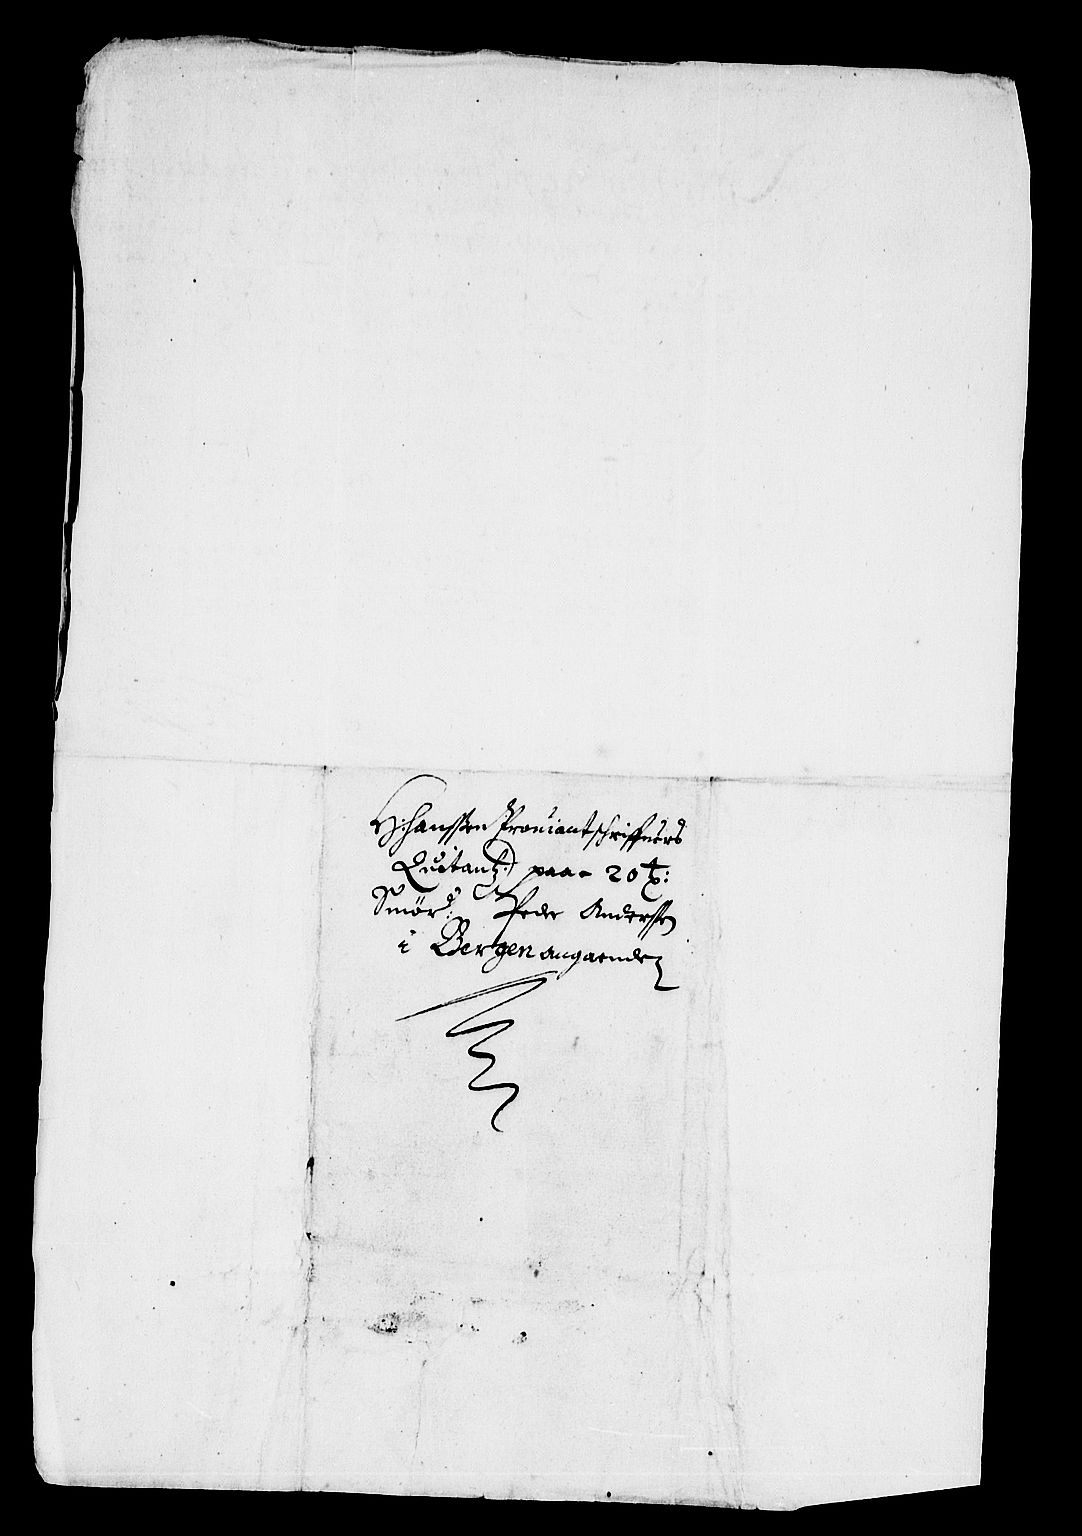 H: hanssen Prouiantschriffuers
Quitantz paa 20 t:
Smør: Peder Anderssen
i Bergen angaende